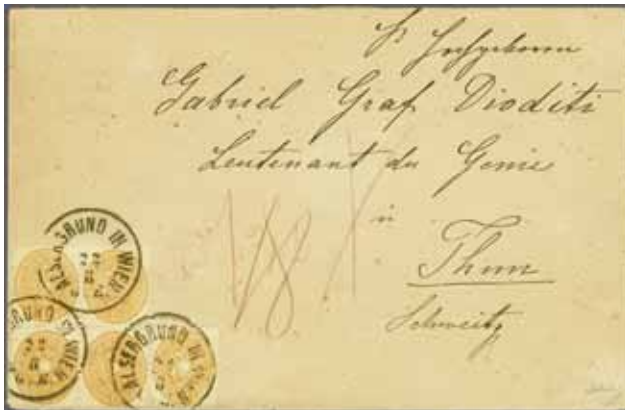 Sr Hochgeboren
Gabriel Graf Dioditi
Leutenant du Genie
in
Thun
Schweitz
ALSERGRUND IN WIEN
ALSERGRUND IN WIEN
ALSERGRUND IN WIEN